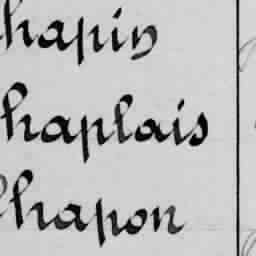 Chapin
Chaplais
Chapon